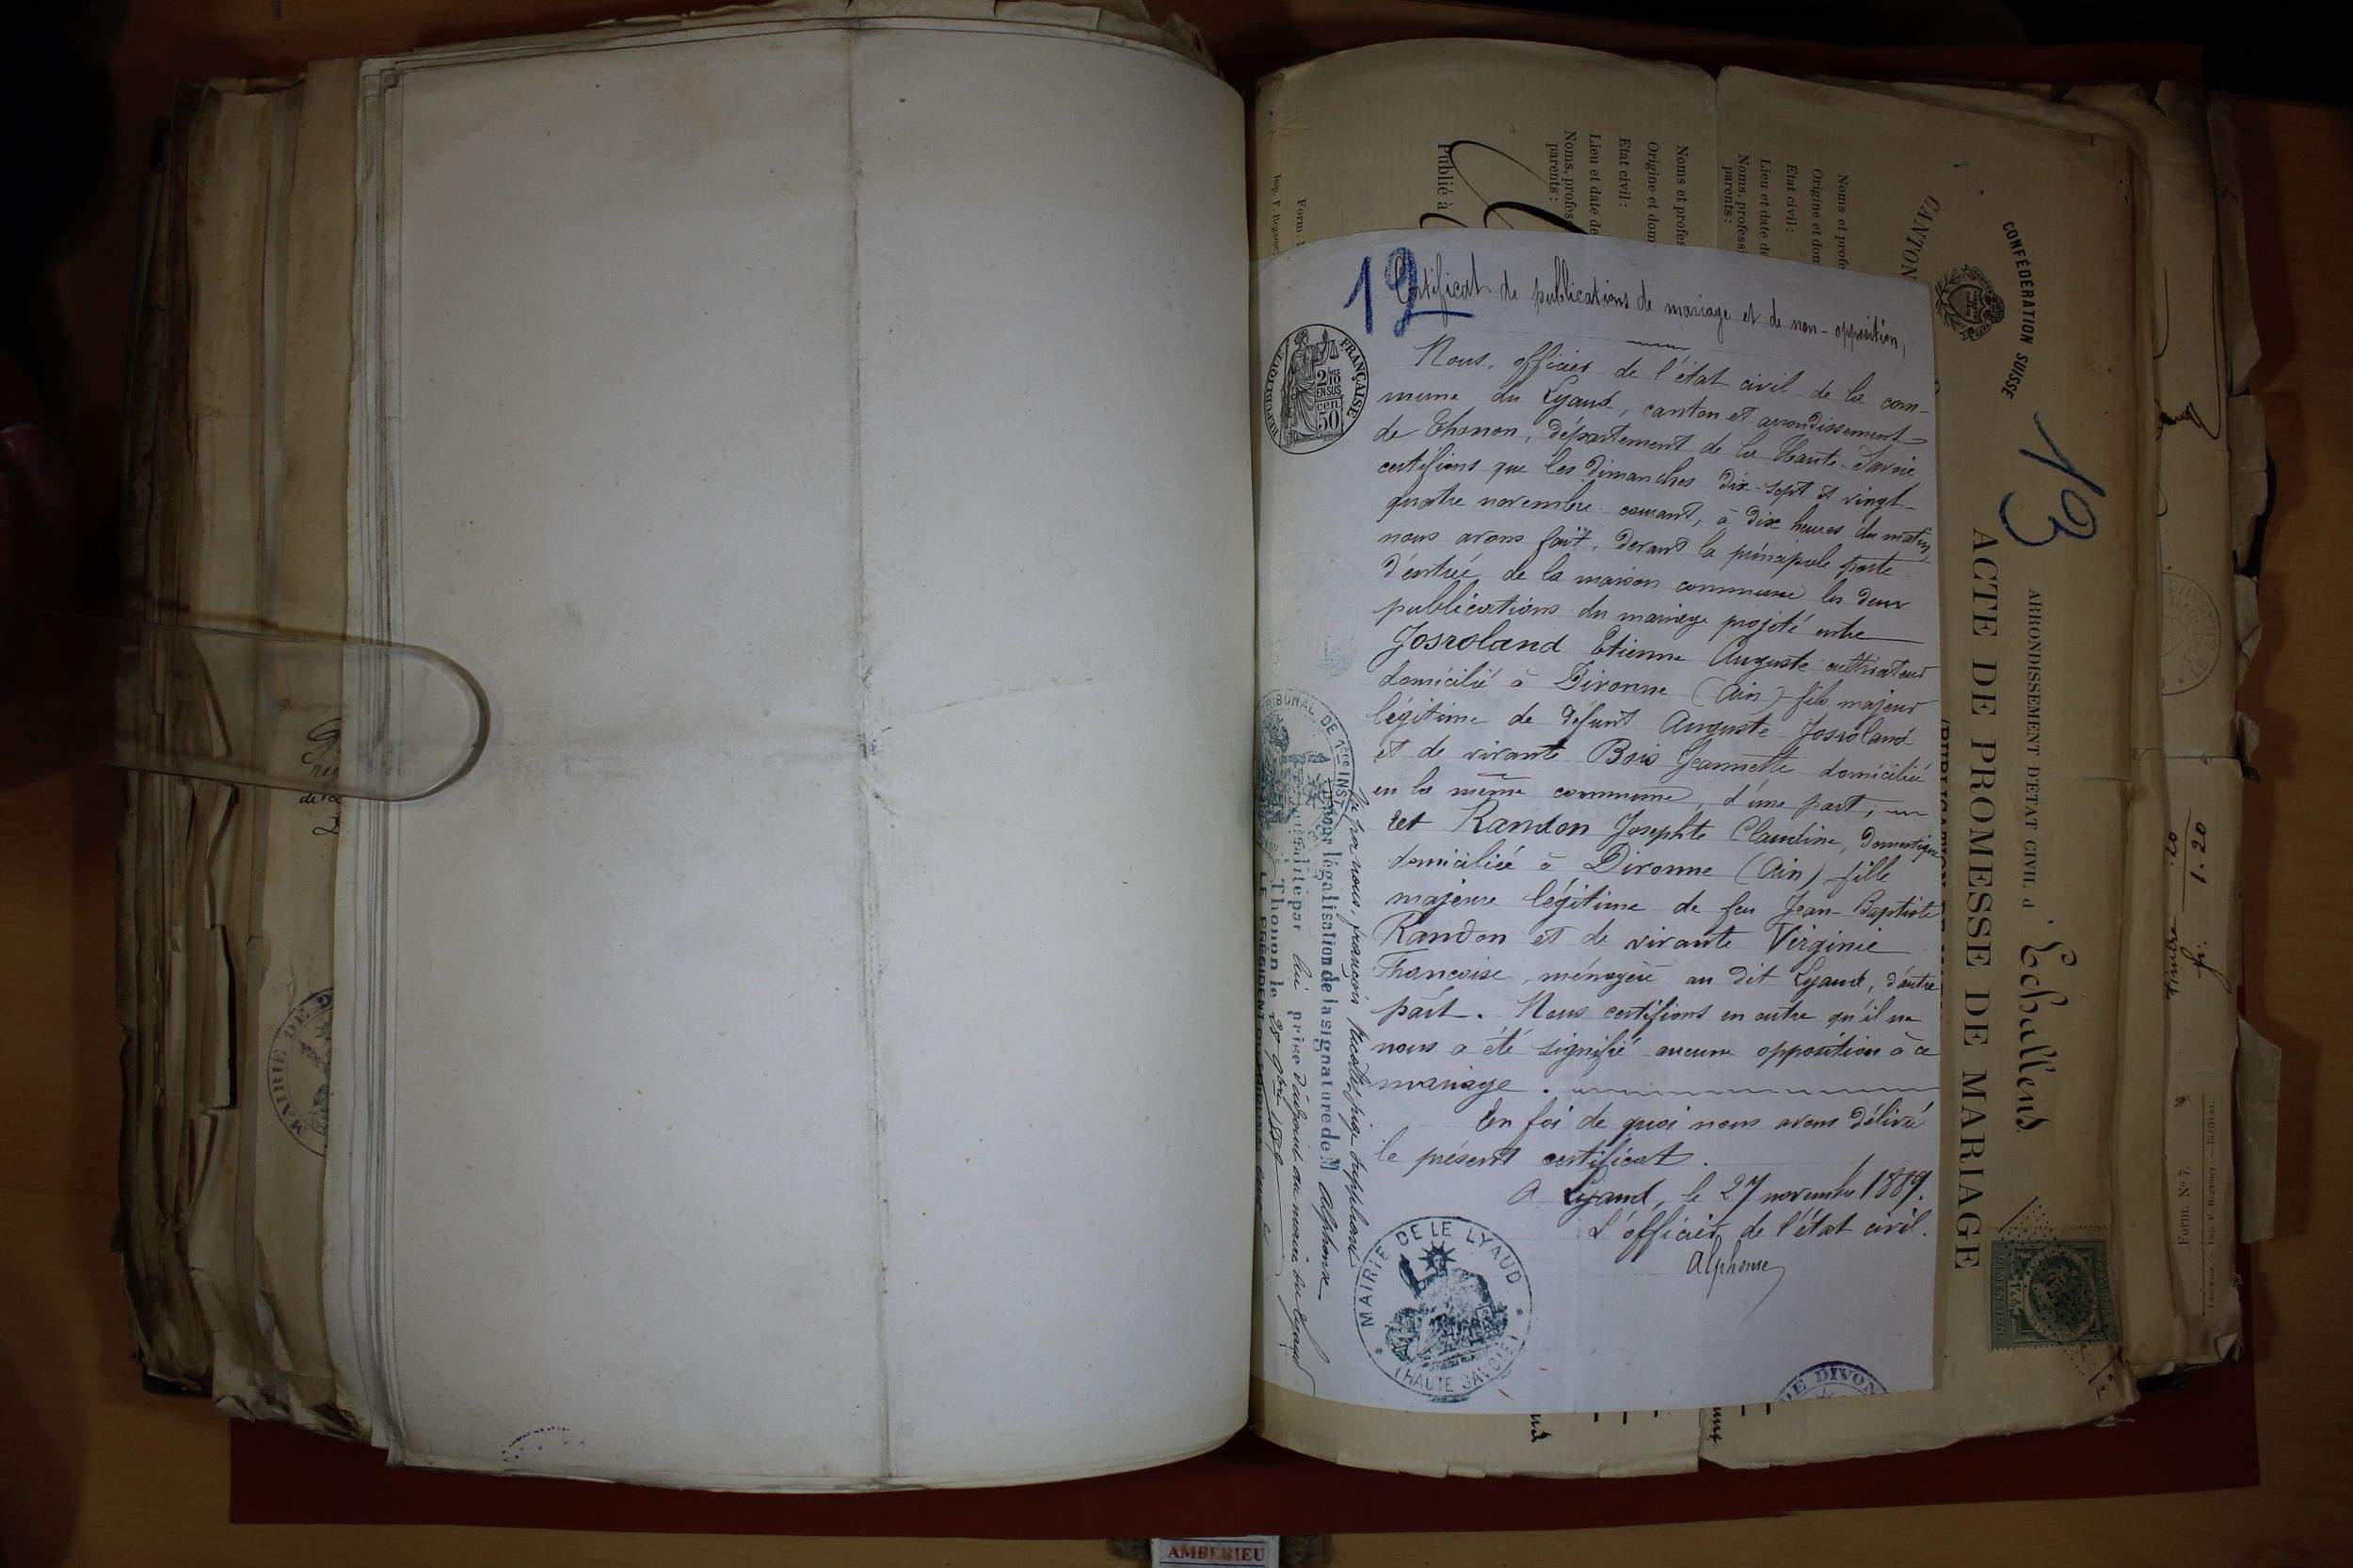 12
Certificat de publications de mariage et de non-opposition,
Nous, officier de l'état civil de la com-
mune du Lyaud, canton et arrondissement
de Thonon, département de la Haute-Savoie
certifions que les dimanches dix-sept et vingt-
quatre novembre courant, à dix heures du matin,
nous avons fait, devant la principale porte
d'entrée de la maison commune les deux
publications du mariage projeté entre
Josroland Etienne Auguste cultivateur
domicilié à Divonne (Ain) fils majeur
légitime de défunt Auguste Josroland
et de vivante Bois Jeannette domiciliée
en la même commune, d'une part,
et Randon Josephte Claudine, domestique
domiciliée à Divonne (Ain) fille
majeure légitime de feu Jean-Baptiste
Randon et de vivante Virginie
Françoise, ménagère au dit Lyaud, d'autre
part. Nous certifions en outre qu'il ne
nous a été signifié aucune opposition à ce
mariage.
En foi de quoi nous avons délivré
le présent certificat.
A Lyaud, le 27 novembre 1889.
L'officier de l'état civil.
Alphonse
MAIRIE DE LE LYAUD
(HAUTE SAVOIE)
RÉPUBLIQUE FRANÇAISE
2/10 EN SUS
50 cen
TRIBUNAL DE 1ère INST
Vu par nous, françois
pour légalisation de la signature de M Alphonse
qualité par lui prise d'adjoint au maire du Lyaud
Thonon le 28 9bre 1889
LE PRÉSIDENT DU TRIBUNAL
DIVON
CONFÉDÉRATION SUISSE
CANTON
13
ARRONDISSEMENT D'ÉTAT CIVIL d'Echallens
ACTE DE PROMESSE DE MARIAGE
Noms et profe
Origine et dom
Etat civil:
Lieu et date de
Noms, professi
parents:
Noms et profes
Origine et dom
Etat civil:
Lieu et date de
Noms, profess
parents:
Publié à
Form. 1
Imp. F. Regamey
Timbre 20
fr. 1.20
Form. N° 7.
Lausanne. Imp. F. Regamey.
MAIRIE DE D
AMBERIEU